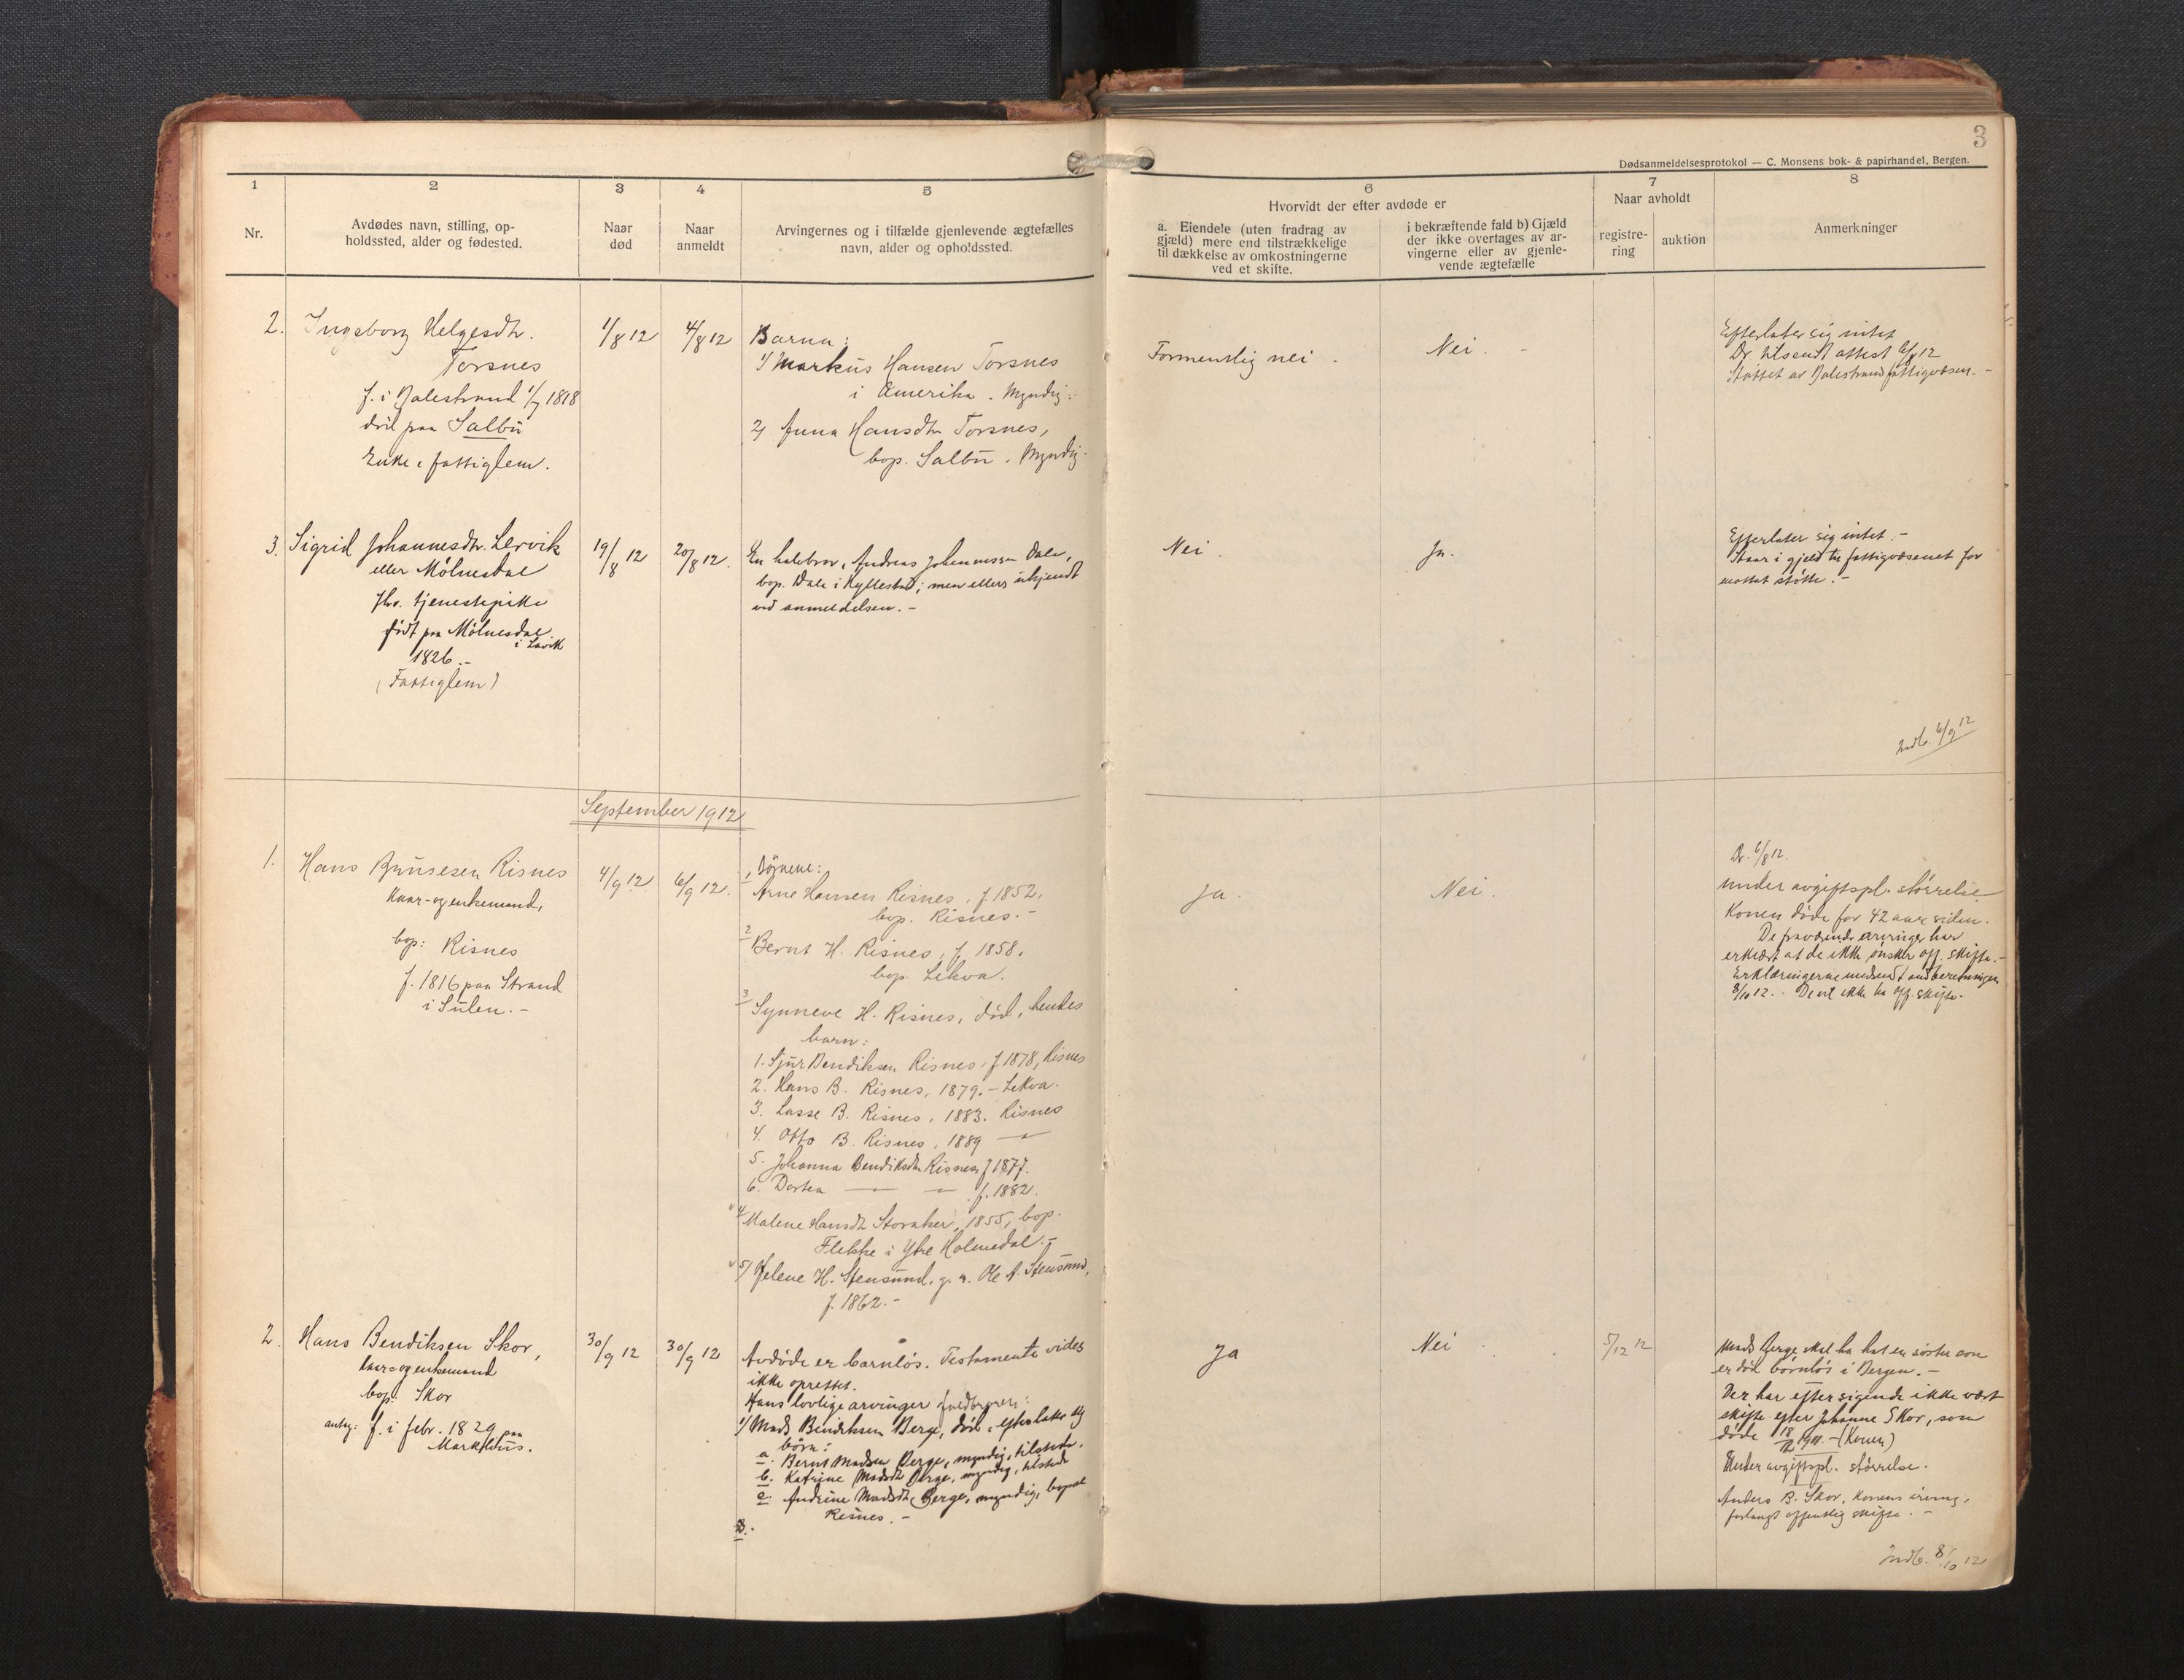 3
Dødsanmeldelsesprotokol — C. Monsens bok- & papirhandel, Bergen.
1
Nr.
2
Avdødes navn, stilling, op-
holdssted, alder og fødested.
3
Naar
død
4
Naar
anmeldt
5
Arvingernes og i tilfælde gjenlevende ægtefælles
navn, alder og opholdssted.
6
Hvorvidt der efter avdøde er
a. Eiendele (uten fradrag av
gjæld) mere end tilstrækkelige
til dækkelse av omkostningerne
ved et skifte.
i bekræftende fald b) Gjæld
der ikke overtages av ar-
vingerne eller av gjenle-
vende ægtefælle
7
Naar avholdt
registre-
ring
auktion
8
Anmerkninger
2. Ingeborg Helgesdtr.
Torsnes
f. i Balestrand 1/7 1818
död paa Salbu
Enke, fattiglem.
1/8 12
4/8 12
Barn:
1/ Markus Hansen Torsnes
i Amerika. Myndig.
2/ Anna Hansdtr Torsnes,
bop. Salbu. Myndig.
Formentlig nei.
Nei.
Efterlater sig intet
Dr. tilsendt attest 6/8 12
Støttet av Balestrand fattigvæsen. -
3. Sigrid Johannesdtr. Lervik
eller Mölnesdal
fhv. tjenestepike
født paa Mölnesdal
i Lavik
1826.-
(Fattiglem)
19/8 12
20/8 12.
En halvbror, Andreas Johannessen Dale,
bop. Dale i Hyllestad; men ellers ukjendt
ved anmeldelsen. -
Nei.
Ja.
Efterlater sig intet. -
Staar i gjeld til fattigvæsenet for
mottat støtte. -
Indb. 6/9 12
September 1912
1. Hans Brusesen Risnes
Kaar- og enkemand,
bop: Risnes
f. 1816 paa Strand
i Sulen. -
4/9 12
6/9 12.
Börnene:
1 Arne Hansen Risnes, f. 1852,
bop. Risnes. -
2 Bernt H. Risnes, f. 1858.
bop. Lekva.
3 Synneve H. Risnes, död, hendes
barn:
1. Sjur Bendiksen Risnes, f 1878, Risnes
2. Hans B. Risnes, 1879. - Lekva.
3. Lasse B. Risnes, 1883. Risnes
4. Otto B. Risnes, 1889 — " —
5. Johanna Bendiksdtr Risnes, f 1877.
6. Dortea — — f. 1882.
4 Malene Hansdtr Storaker, 1855, bop.
Flekke i Ytre Holmedal. -
5/ Jelene H. Stensund, g. m. Ole A. Stensund,
f. 1862. -
Ja.
Nei.
Dr. 6/8 12.
Under avgiftspl. størrelse
Konen døde for 42 aar siden.
De fraværende arvinger har
erklært at de ikke ønsker off. skifte. -
Erklæringerne medsendt indberetningen
8/10 12. - De vil ikke ha off. skifte.
2 Hans Bendiksen Skor,
kaar- og enkemand
bop: Skor
antag: f. i febr. 1829 paa
Markhus.
30/9 12
30/9 12
Avdöde er barnlös. Testamente vides
ikke oprettet.
Hans lovlige arvinger
1/ Mads Bendiksen Berge, död, efterlater sig
börn:
a. Bernt Madsen Berge, myndig, tilstede.
b. Katrine Madsdtr Berge, myndig, tilstede
c. Andrine Madsdtr Berge, myndig, bopæl
Risnes. -
Ja
Nei
5/12 12
Mads Berge skal ha hat en søster som
er död börnlös i Bergen. -
Der har eftersigende ikke vært
skifte efter Johanne Skor, som
döde 1911. - (Konen)
Under avgiftspl. størrelse.
Anders B. Skor, konens arving,
forlangt offentlig skifte. -
Indb. 8/10 12